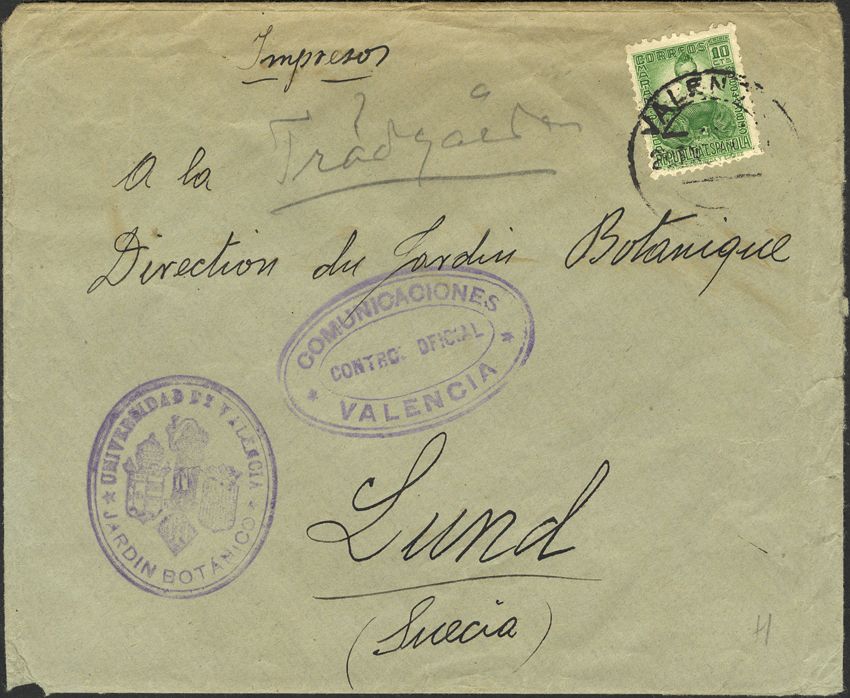 Impresos
CORREOS
10
CTS
REPUBLICA ESPAÑOLA
VALEN
Trädgården
A la
Direction du Jardin Botanique
COMUNICACIONES
CONTROL OFICIAL
* VALENCIA *
UNIVERSIDAD DE VALENCIA
* JARDIN BOTÁNICO *
Lund
(Suecia)